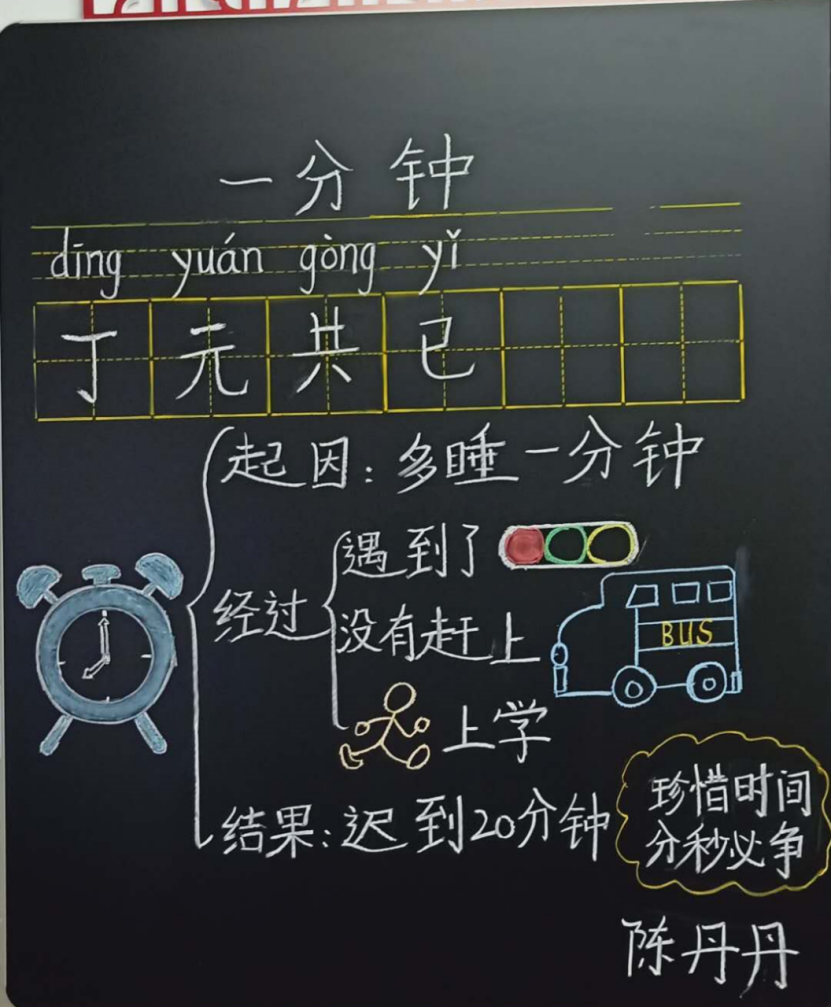 一分钟
dīng yuán gòng yǐ
丁元共已
起因：多睡一分钟
经过
遇到了
没有赶上
BUS
上学
结果：迟到20分钟
珍惜时间
分秒必争
陈丹丹